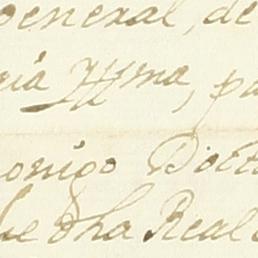 General, de
ria Yllma, pa
onigo Doct
de dha Real